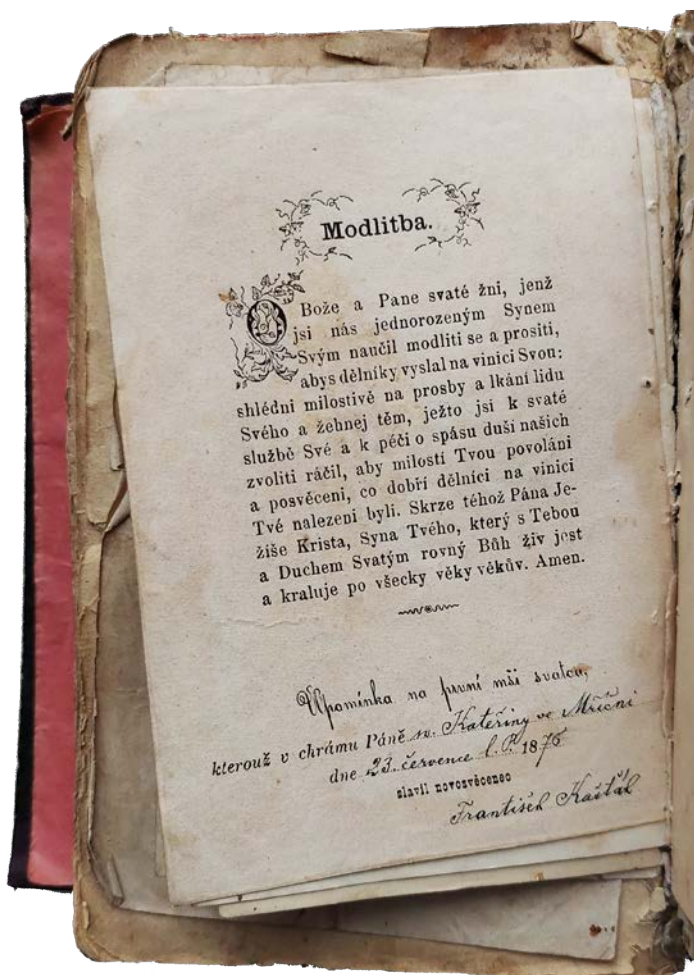 Modlitba.
O Bože a Pane svaté žni, jenž
jsi nás jednorozeným Synem
Svým naučil modliti se a prositi,
abys dělníky vyslal na vinici Svou:
shlédni milostivě na prosby a lkání lidu
Svého a žehnej těm, ježto jsi k svaté
službě Své a k péči o spásu duší našich
zvoliti ráčil, aby milostí Tvou povoláni
a posvěceni, co dobří dělníci na vinici
Tvé nalezeni byli. Skrze téhož Pána Je-
žíše Krista, Syna Tvého, který s Tebou
a Duchem Svatým rovný Bůh živ jest
a kraluje po všecky věky věkův. Amen.
Upomínka na první mši svatou,
kterouž v chrámu Páně sv. Kateřiny ve Mříčni
dne 23. července l. P. 1876
slavil novosvěcenec
František Kaštál